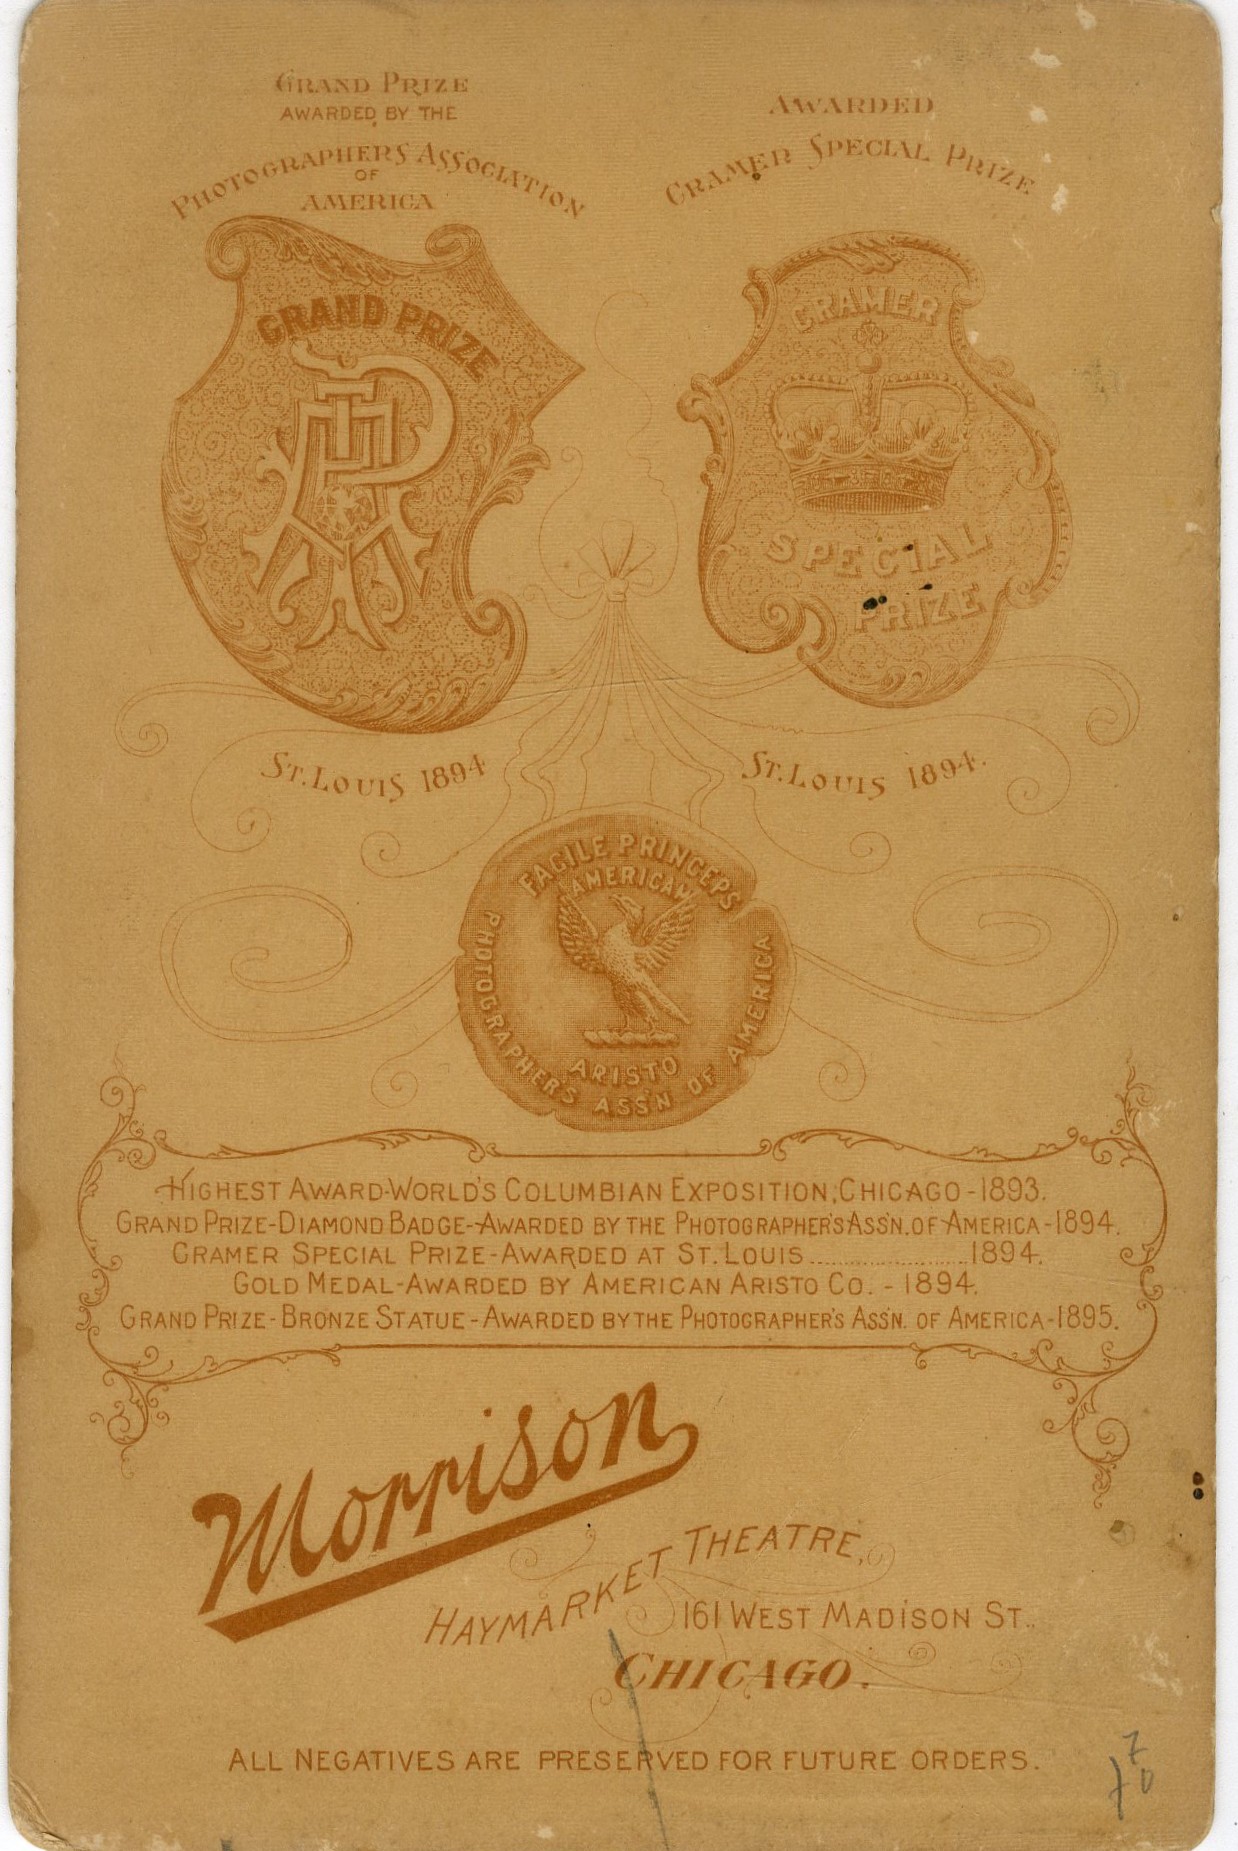 GRAND PRIZE
AWARDED BY THE
PHOTOGRAPHERS ASSOCIATION
OF
AMERICA
GRAND PRIZE
ST. LOUIS 1894
AWARDED
CRAMER SPECIAL PRIZE
CRAMER
SPECIAL
PRIZE
ST. LOUIS 1894.
FACILE PRINCEPS
AMERICAN
ARISTO
PHOTOGRAPHER'S ASS'N OF AMERICA
HIGHEST AWARD-WORLD'S COLUMBIAN EXPOSITION, CHICAGO-1893.
GRAND PRIZE-DIAMOND BADGE-AWARDED BY THE PHOTOGRAPHER'S ASS'N. OF AMERICA-1894.
CRAMER SPECIAL PRIZE-AWARDED AT ST. LOUIS....................1894.
GOLD MEDAL-AWARDED BY AMERICAN ARISTO CO. - 1894.
GRAND PRIZE-BRONZE STATUE-AWARDED BY THE PHOTOGRAPHER'S ASS'N. OF AMERICA-1895.
Morrison
HAYMARKET THEATRE,
161 WEST MADISON ST.
CHICAGO.
ALL NEGATIVES ARE PRESERVED FOR FUTURE ORDERS.